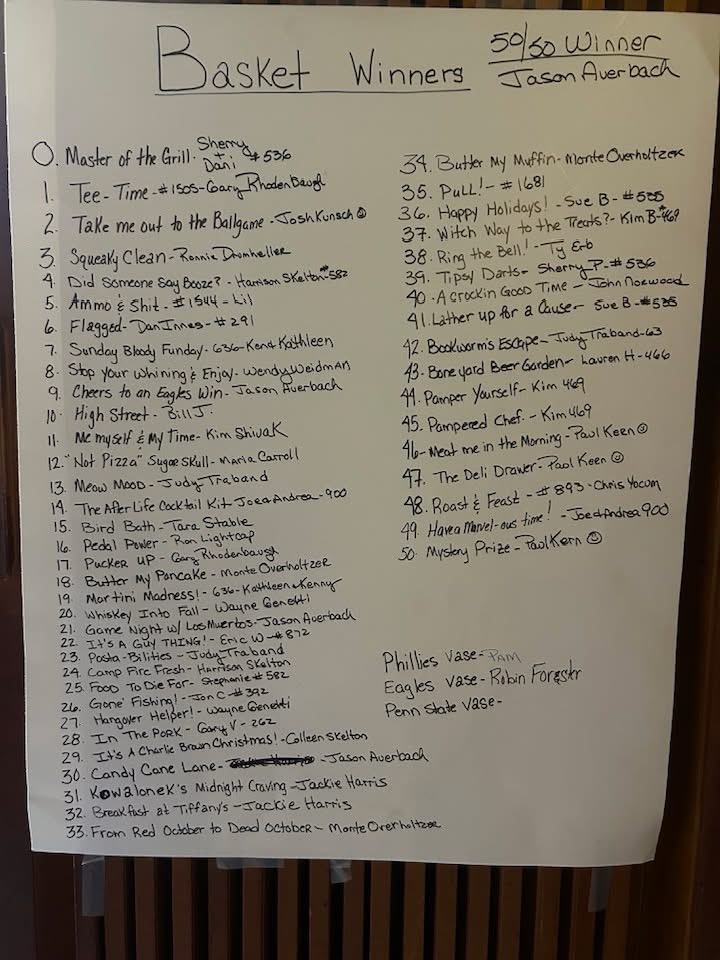 Basket Winners
50/50 Winner
Jason Auerbach
0. Master of the Grill - Sherry + Dani #536
1. Tee-Time - #1505 - Gary Rhodenbaugh
2. Take me out to the Ballgame - Josh Kunsch ☺
3. Squeaky Clean - Ronnie Drumheller
4. Did Someone Say Booze? - Harrison Skelton #582
5. Ammo & Shit - #1544 - Lil
6. Flagged - Dan Innes - #291
7. Sunday Bloody Funday - 636 - Ken & Kathleen
8. Stop Your Whining & Enjoy - Wendy Weidman
9. Cheers to an Eagles Win - Jason Auerbach
10. High Street - Bill J.
11. Me myself & My Time - Kim Shivak
12. "Not Pizza" Sugar Skull - Maria Carroll
13. Meow Mood - Judy Traband
14. The After Life Cocktail Kit - Joe & Andrea - 900
15. Bird Bath - Tara Stable
16. Pedal Power - Ron Lightcap
17. Pucker UP - Gary Rhodenbaugh
18. Butter My Pancake - Monte Overholtzer
19. Martini Madness! - 636 - Kathleen & Kenny
20. Whiskey Into Fall - Wayne Genetti
21. Game Night w/ Los Muertos - Jason Auerbach
22. It's A Guy THING! - Eric W - #872
23. Pasta-Bilities - Judy Traband
24. Camp Fire Fresh - Harrison Skelton
25. Food To Die For - Stephanie #582
26. Gone Fishing! - Jon C - #392
27. Hangover Helper! - Wayne Genetti
28. In The Pork - Gary V - 262
29. It's A Charlie Brown Christmas! - Colleen Skelton
30. Candy Cane Lane - Jason Auerbach
31. Kowalonek's Midnight Craving - Jackie Harris
32. Breakfast at Tiffany's - Jackie Harris
33. From Red October to Dead October - Monte Overholtzer
34. Butter My Muffin - Monte Overholtzer
35. Pull! - #1681
36. Happy Holidays! - Sue B - #535
37. Witch Way to the Treats? - Kim B - #469
38. Ring the Bell! - Ty Erb
39. Tipsy Darts - Sherry P. - #536
40. A Crockin Good Time - John Norwood
41. Lather up for a Cause - Sue B - #535
42. Bookworm's Escape - Judy Traband - 63
43. Boneyard Beer Garden - Lauren H - 466
44. Pamper Yourself - Kim 469
45. Pampered Chef. - Kim 469
46. Meat me in the Morning - Paul Keen ☺
47. The Deli Drawer - Paul Keen ☺
48. Roast & Feast - #893 - Chris Yocum
49. Have a Marvel-ous time! - Joe & Andrea 900
50. Mystery Prize - Paul Kern ☺
Phillies Vase - PAM
Eagles Vase - Robin Foreskr
Penn State Vase -